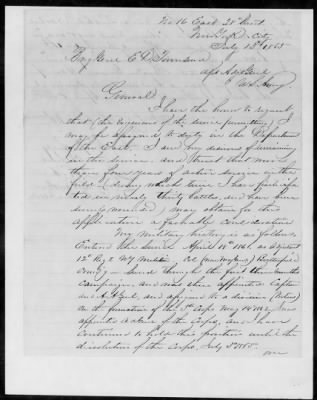 No 16 East 28th Street
New York City
July 13th 1865
Brig Genl E D Townsend
Asst Adjt Genl
U.S. Army
General
I have the honor to request,
that (the exigencies of the service permitting) I
may be assigned to duty in the Department
of the East. I am very desirous of remaining
in the service, and trust that more
than four years of active service in the
field (during which time I have participa-
ted in nearly thirty battles, and have been
wounded) may obtain for this
application a favorable consideration
My Military history is as follows.
Entered the service April 19th 1861, as Adjutant
12th Regt N Y Militia, Col (now Maj Genl) Butterfield
Comdg - served through the first three months
campaign, and was then appointed Captain
and A.A. Genl, and assigned to a division
On the formation of the 5th Corps May 1862, was
appointed of the Corps, and have
continued to hold this position until the
dissolution of the Corps, July 5th 1865.